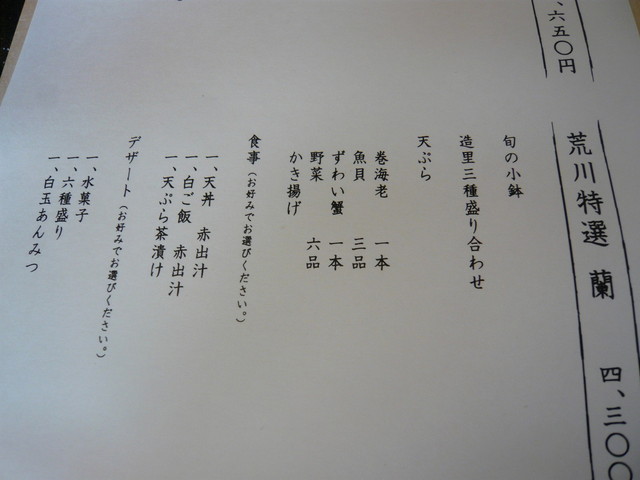 、六五〇円
荒川特選 蘭 四、三〇〇
旬の小鉢
造里三種盛り合わせ
天ぷら
巻海老 一本
魚貝 三品
ずわい蟹 一本
野菜 六品
かき揚げ
食事（お好みでお選びください。）
一、天丼 赤出汁
一、白ご飯 赤出汁
一、天ぷら茶漬け
デザート（お好みでお選びください。）
一、水菓子
一、六種盛り
一、白玉あんみつ